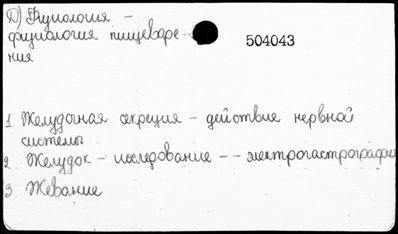 Д) Физиология -
физиология пищеваре-
ния
504043
1 Желудочная секреция - действие нервной
системы
2. Желудок - исследование -- электрогастрографи
3 Жевание